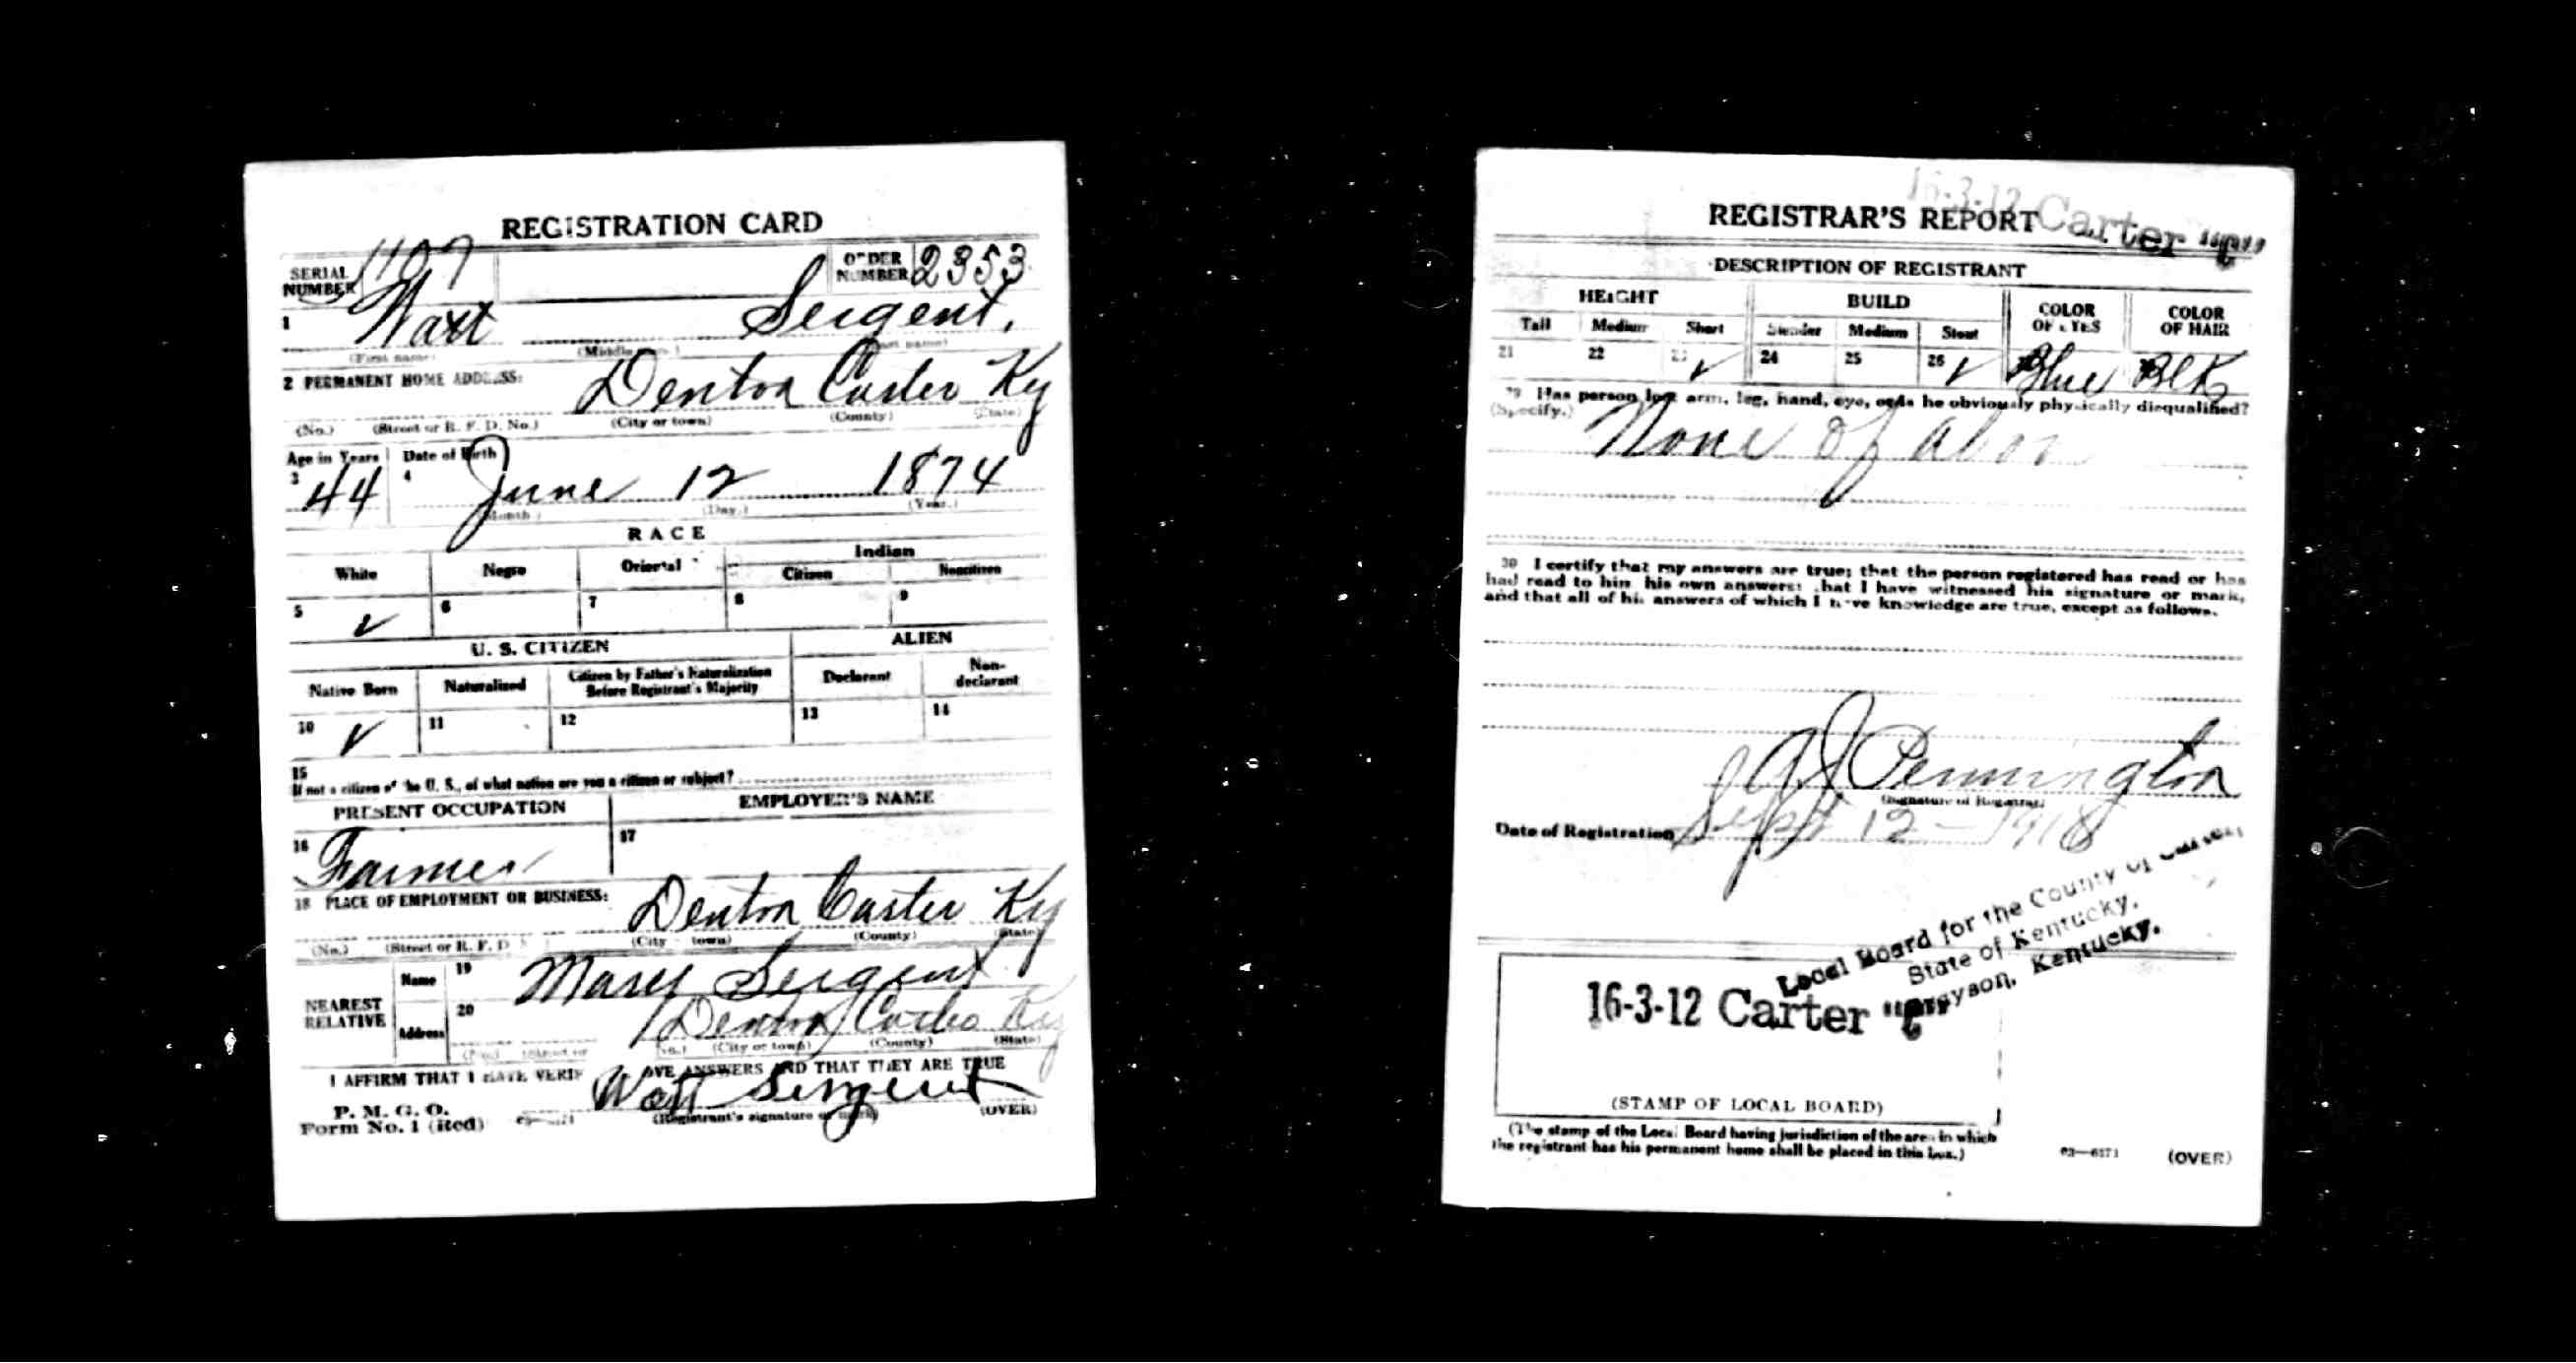 REGISTRATION CARD
SERIAL NUMBER 1107 ORDER NUMBER 2353
1 Watt Sergent,
(First name) (Middle name) (Last name)
2 PERMANENT HOME ADDRESS: Denton Carter Ky
(No.) (Street or R. F. D. No.) (City or town) (County) (State)
Age in Years Date of Birth
3 44 4 June 12 1874
(Month.) (Day.) (Year.)
RACE
White Negro Oriental Indian
Citizen Noncitizen
5 ✓ 6 7 8 9
U. S. CITIZEN ALIEN
Native Born Naturalized Citizen by Father's Naturalization Before Registrant's Majority Declarant Non-declarant
10 ✓ 11 12 13 14
15
If not a citizen of the U. S., of what nation are you a citizen or subject?
PRESENT OCCUPATION EMPLOYER'S NAME
16 Farmer 17
18 PLACE OF EMPLOYMENT OR BUSINESS: Denton Carter Ky
(No.) (Street or R. F. D. No.) (City or town) (County) (State)
NEAREST RELATIVE
Name 19 Mary Sergent
Address 20 Denton Carter Ky
(No.) (City or town) (County) (State)
I AFFIRM THAT I HAVE VERIF OVE ANSWERS AND THAT THEY ARE TRUE
P. M. G. O.
Form No. 1 (Red) Watt Sergent
(Registrant's signature or mark) (OVER)
16-3-12 Carter "C"
REGISTRAR'S REPORT
DESCRIPTION OF REGISTRANT
HEIGHT BUILD COLOR OF EYES COLOR OF HAIR
Tall Medium Short Slender Medium Stout
21 22 23 ✓ 24 25 26 ✓ Blue Blk
29 Has person lost arm, leg, hand, eye, or is he obviously physically disqualified?
(Specify.) None of
30 I certify that my answers are true; that the person registered has read or has
had read to him his own answers; that I have witnessed his signature or mark,
and that all of his answers of which I have knowledge are true, except as follows.
A J Pennington
(Signature of Registrar)
Date of Registration Sept 12 - 1918
Local Board for the County of Carter,
State of Kentucky,
Grayson, Kentucky.
16-3-12 Carter "C"
(STAMP OF LOCAL BOARD)
(The stamp of the Local Board having jurisdiction of the area in which
the registrant has his permanent home shall be placed in this box.)
03—6171 (OVER)